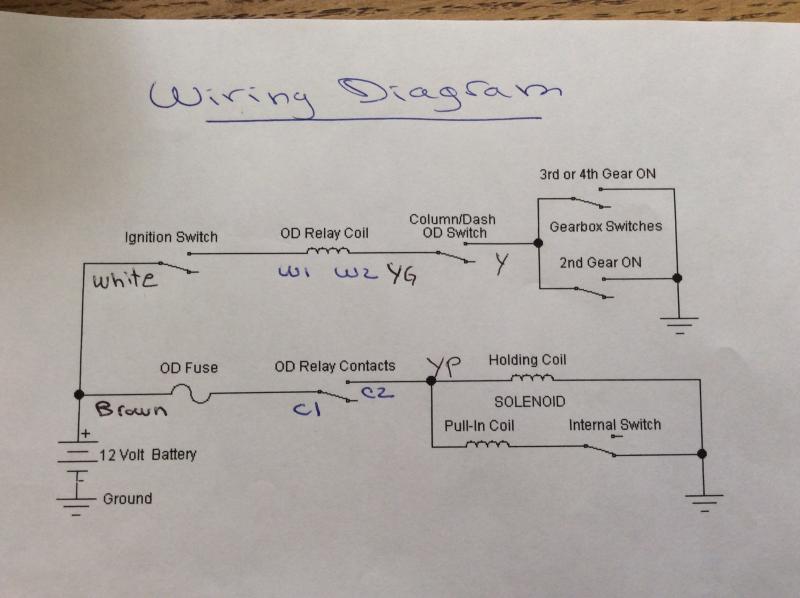 Wiring Diagram
3rd or 4th Gear ON
Column/Dash
OD Switch
Ignition Switch
OD Relay Coil
Gearbox Switches
White
W1
W2
YG
Y
2nd Gear ON
OD Fuse
OD Relay Contacts
YP
Holding Coil
Brown
C1
C2
SOLENOID
Pull-In Coil
Internal Switch
+
12 Volt Battery
-
Ground